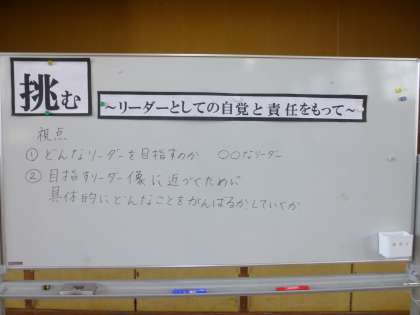 挑む
～リーダーとしての自覚と責任をもって～
視点
① どんなリーダーを目指すのか ○○なリーダー
② 目指すリーダー像に近づくために
具体的にどんなことをがんばるかしていくか